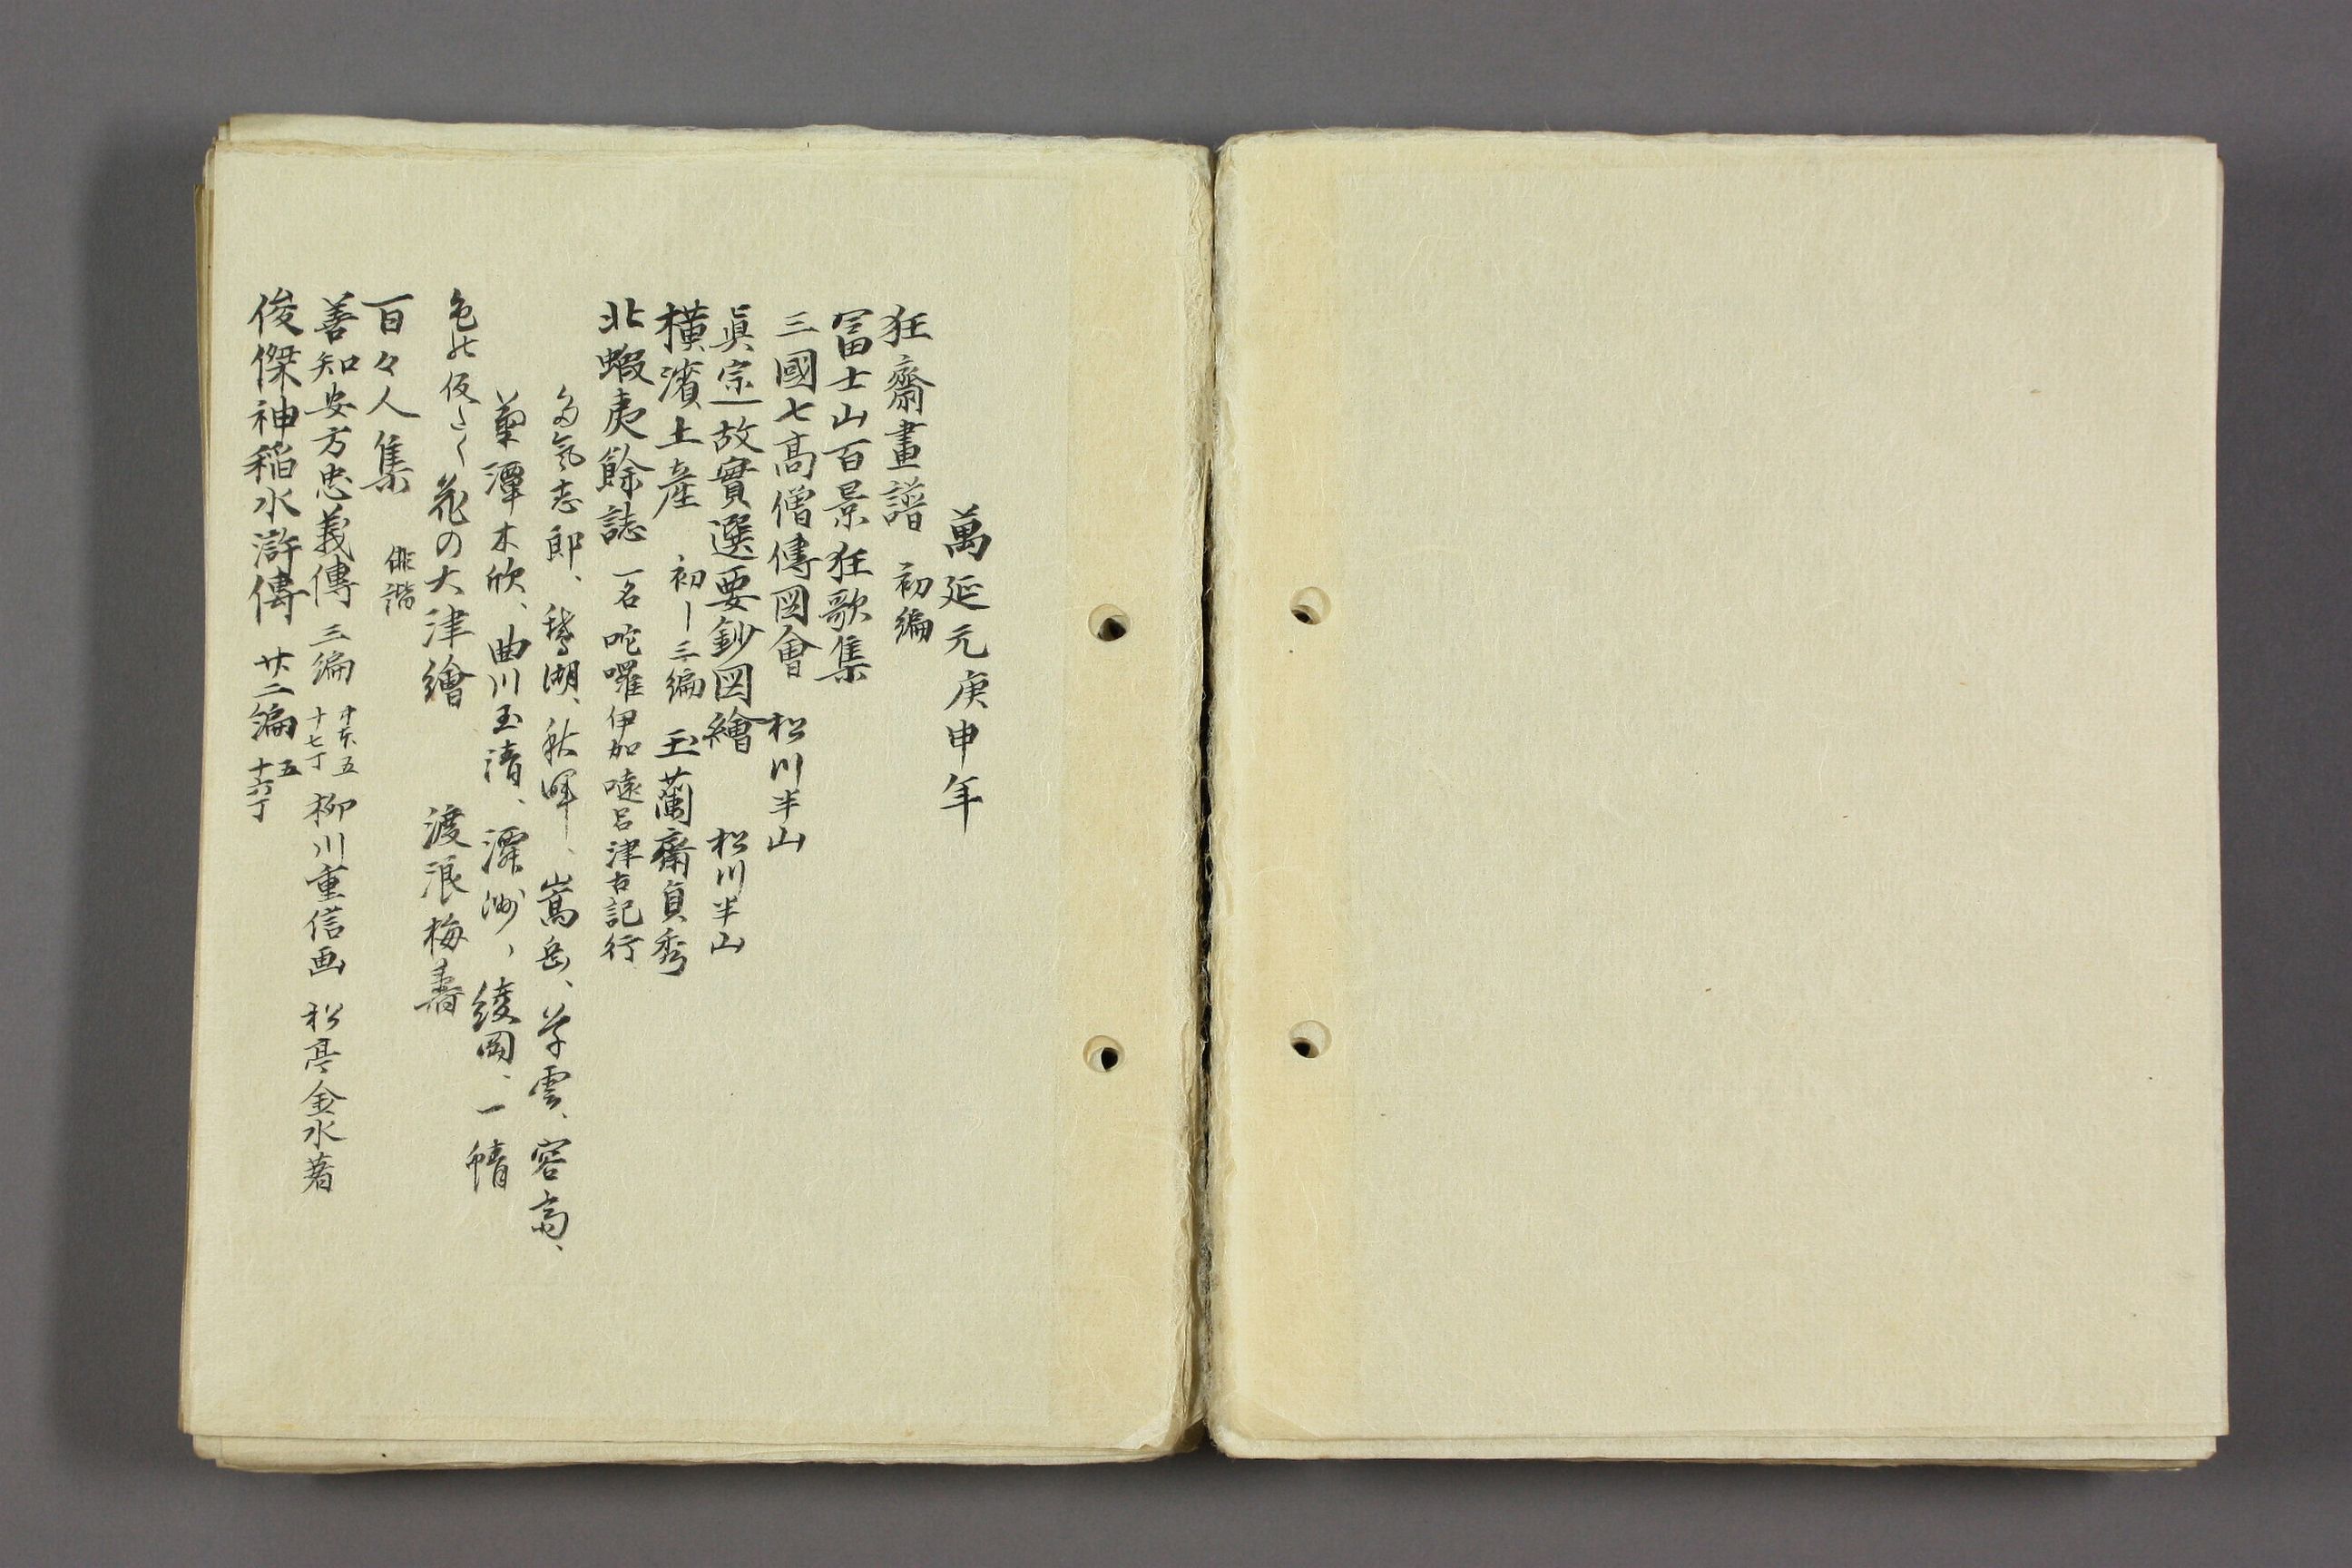 萬延元庚申年
狂齋畫譜 初編
冨士山百景狂歌集
三國七髙僧傳図會 松川半山
眞宗故實選要鈔図繪 松川半山
橫濱土産 初ー三編 玉蘭齋貞秀
北蝦夷餘誌 一名 咜囉伊加噠呂津古記行
多氣志郎、鵞湖、秋暉、嵩岳、芋雲、容斎、
菫潭木欣、曲川玉清、澤洲、綾岡、一晴
色は仮さく花の大津繪 渡浪梅壽
百々人集 俳諧
善知安方忠義傳 三編 中本五 十七丁 柳川重信画 松亭金水著
俊傑神稲水滸傳 廿二編 五 十六丁